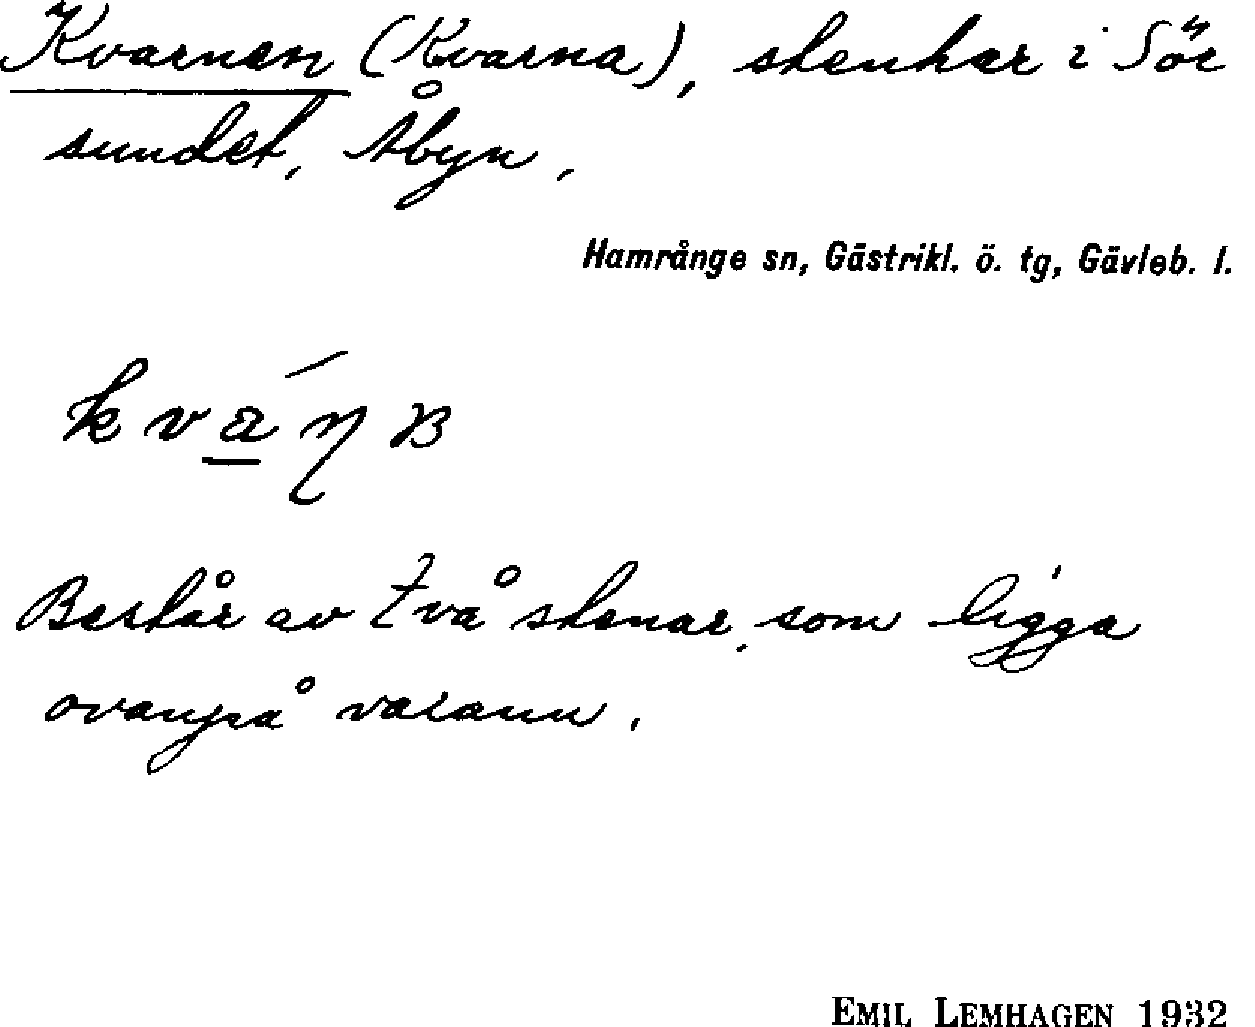 Kvarnen (Kvarna), stenhar i Sör
sundet, Åbyn,
Hamrånge sn, Gästrikl. ö. tg, Gävleb. l.
Består av två stenar, som ligga
ovanpå varann.
EMIL LEMHAGEN 1932